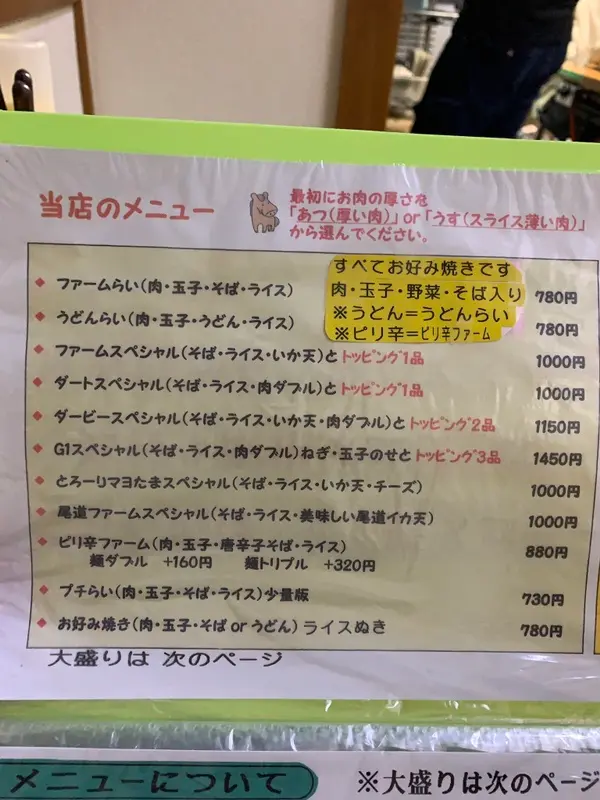 当店のメニュー
最初にお肉の厚さを
「あつ(厚い肉)」or「うす(スライス薄い肉)」
から選んでください。
すべてお好み焼きです
肉・玉子・野菜・そば入り
※うどん=うどんらい
※ピリ辛=ピリ辛ファーム
◆ ファームらい(肉・玉子・そば・ライス) 780円
◆ うどんらい(肉・玉子・うどん・ライス) 780円
◆ ファームスペシャル(そば・ライス・いか天)とトッピング1品 1000円
◆ ダートスペシャル(そば・ライス・肉ダブル)とトッピング1品 1000円
◆ ダービースペシャル(そば・ライス・いか天・肉ダブル)とトッピング2品 1150円
◆ G1スペシャル(そば・ライス・肉ダブル)ねぎ・玉子のせとトッピング3品 1450円
◆ とろーりマヨたまスペシャル(そば・ライス・いか天・チーズ) 1000円
◆ 尾道ファームスペシャル(そば・ライス・美味しい尾道イカ天) 1000円
◆ ピリ辛ファーム(肉・玉子・唐辛子そば・ライス) 880円
麺ダブル +160円 麺トリプル +320円
◆ プチらい(肉・玉子・そば・ライス)少量版 730円
◆ お好み焼き(肉・玉子・そば or うどん) ライスぬき 780円
大盛りは 次のページ
メニューについて ※大盛りは次のページ